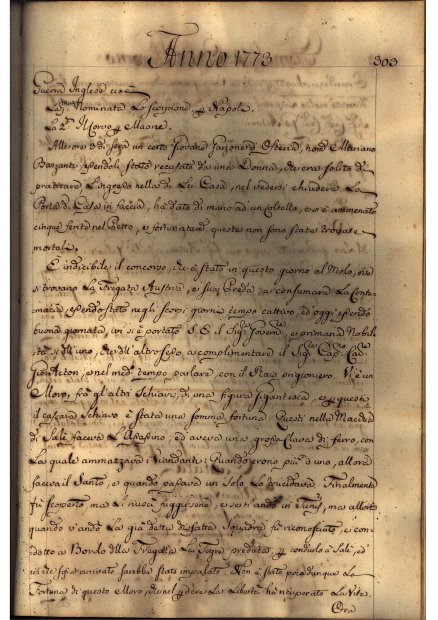 Anno 1773
303
Guerra Inglesi cioè
La p.ma Nominata Lo Scorpione p Napoli
La 2.da Il Corvo p Maone.
Alle ore 3 di sera un certo Giovane Garzone d'Osteria, nom.e Mariano
Barganti, essendoli stato recusato da una Donna, che era solito di
praticare l'ingresso nella di Lei Casa, nel vedersi chiudere La
Porta di Casa in faccia, ha dato di mano ad un coltello, e si è ammenato
cinque ferite nel Petto, e fortunatam.te queste non sono state trovate
mortali.
È indicibile il concorso, che è stato in questo giorno al Molo, ove
si trovano La Fregata Austria, e sua Preda, a consumare La Contu-
macia, essendo stato negli scorsi giorni tempo cattivo, ed oggi essendo
buona giornata, vi si è portato S. E. il Sig.r Govern.e, e primaria Nobil-
tà sì dell'uno, che dell'altro sesso a complimentare il Sig.r Cap.no Cav.re
Gio: Acton, e nel med.mo tempo parlare con il Rais prigioniero. Vi è un
Moro, fra gl'altri Schiavi, di una figura gigantesca, e p questo
il cascare Schiavo è stata una somma fortuna: Questi nella Macchia
di Salè faceva L'Assassino, ed aveva una grossa Clava di ferro, con
La quale ammazzava i Viandanti: Quando erono più d'uno, allora
faceva il Santo, e quando passava un Solo Lo trucidava. Finalmente
fù scoperto, ma Li riuscì fuggirsene, e se ne andò in Tunis, ma allorché
quando v'andò La già detta disfatta Squadra fù riconosciuto, e con-
dotto a Bordo della Fregata La Tigre predata, p condurlo a Salè, ed
ivi che fosse arrivato sarebbe stato impalato. Non è stata poca dunque La
Fortuna di questo Moro, che nel perdere La Libertà ha recuperato La Vita.
Ora